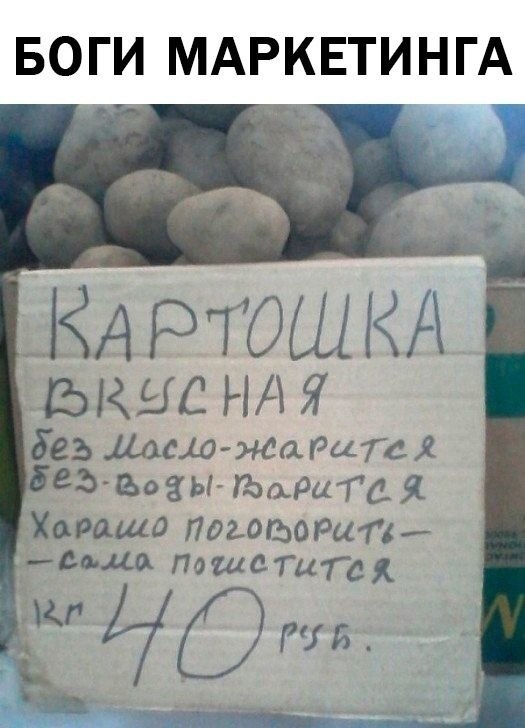 БОГИ МАРКЕТИНГА
КАРТОШКА
ВКУСНАЯ
без Масло-жарится
без-воды-Варится
Харашо поговорить-
-сама почистится
кг 40 руб.